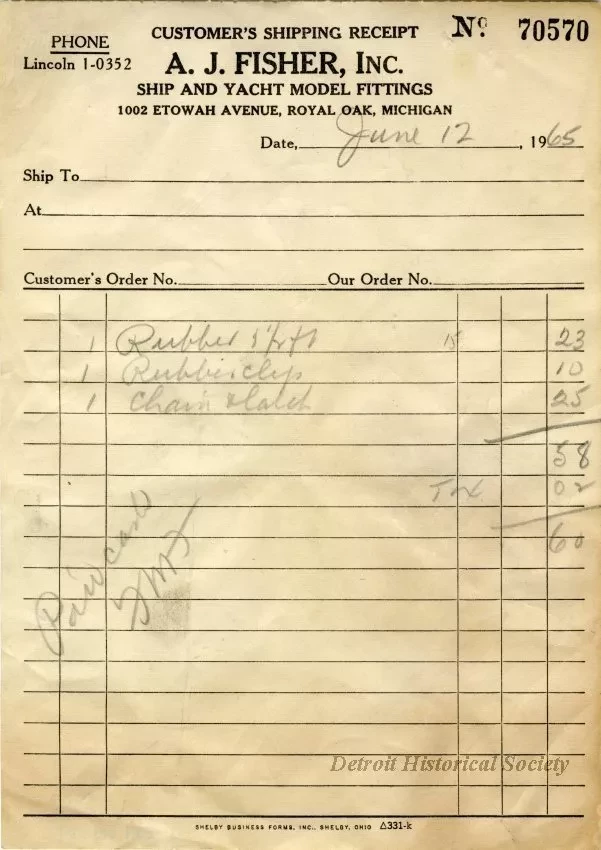 CUSTOMER'S SHIPPING RECEIPT
Nº 70570
PHONE
Lincoln 1-0352
A. J. FISHER, INC.
SHIP AND YACHT MODEL FITTINGS
1002 ETOWAH AVENUE, ROYAL OAK, MICHIGAN
Date, June 12, 1965
Ship To
At
Customer's Order No. Our Order No.
1 Rubber 15 23
1 Rubber clip 10
1 Chain & Latch 25
58
Tax 02
60
Paid cash
Detroit Historical Society
SHELBY BUSINESS FORMS, INC., SHELBY, OHIO Δ331-k